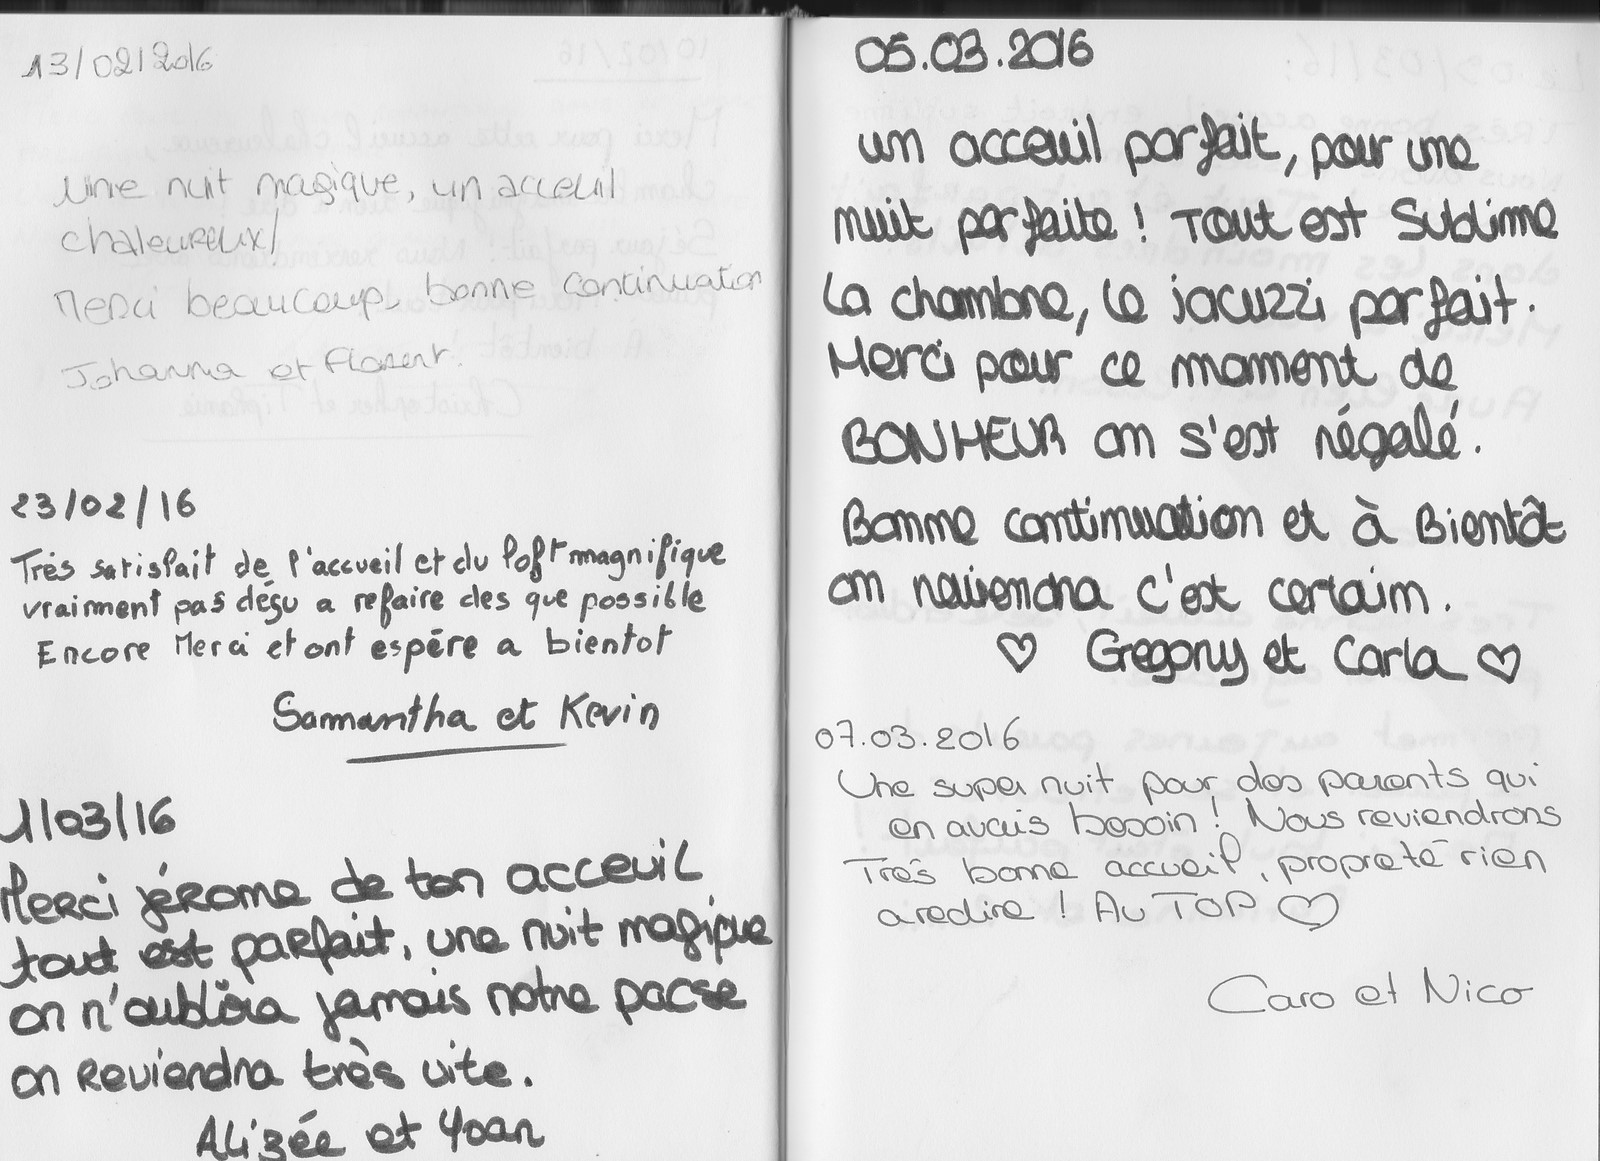 13/02/2016
Une nuit magique, un acceuil
chaleureux!
Merci beaucoup, bonne continuation
Johanna et Florent.
23/02/16
Très satisfait de l'accueil et du loft magnifique
vraiment pas déçu a refaire des que possible
Encore Merci et ont espère a bientot
Samantha et Kevin
1/03/16
Merci jérome de ton acceuil
tout est parfait, une nuit magique
on n'oubliera jamais notre pacse
on Reviendra très vite.
Alizée et Yoan
05.03.2016
un acceuil parfait, pour une
nuit parfaite ! Tout est Sublime
la chambre, le jacuzzi parfait.
Merci pour ce moment de
BONHEUR on s'est régalé.
Bonne continuation et à Bientôt
on reviendra c'est certain.
♡ Gregory et Carla ♡
07.03.2016
Une super nuit pour des parents qui
en avais besoin ! Nous reviendrons
Très bonne accueil, propreté rien
a redire ! Au TOP ♡
Caro et Nico